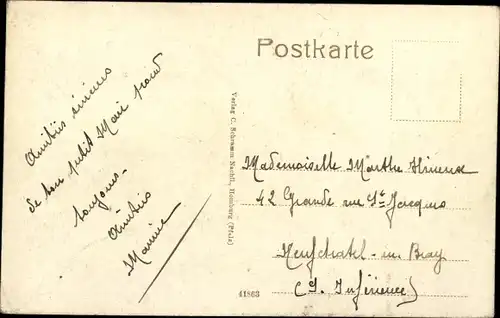 Postkarte
Amitiés sincères
de ton petit Mari pour
toujours
Amitiés
Maurice
Verlag C. Schramm Nachfl., Homburg (Pfalz)
Mademoiselle Marthe
42 Grande rue St Jacques
Neufchatel-en Bray
(S. Inférieure)
41863